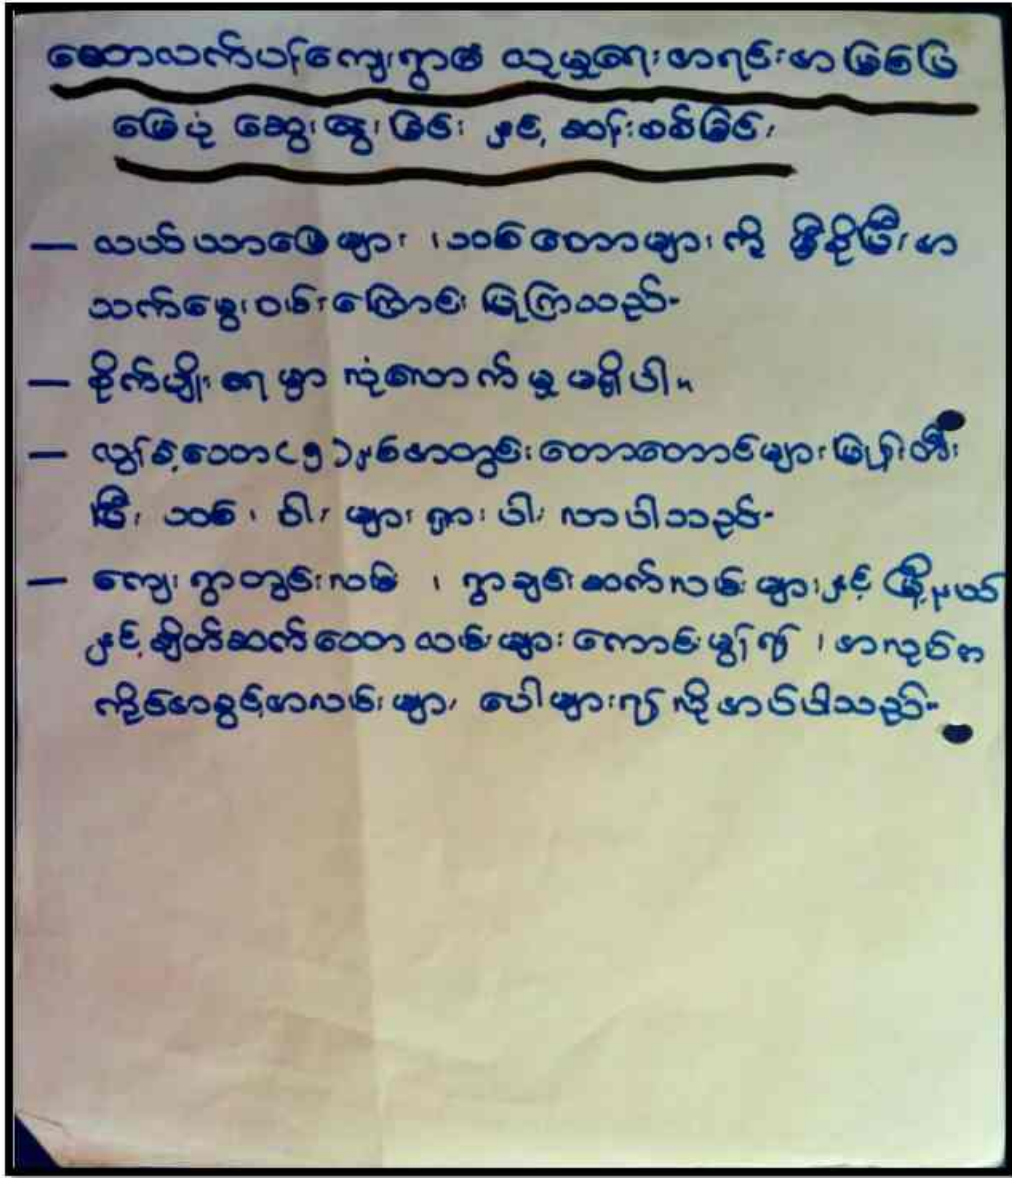 ဆောလက်ပန်ကျေးရွာ၏ လူမှုရေးအရင်းအမြစ်ပြ
မြေပုံ ဆွေးနွေးခြင်း နှင့် ဆန်းစစ်ခြင်း
— လယ်ယာမြေများ ၊သစ်တောများ ကို မှီခိုပြီးအ
သက်မွေးဝမ်းကြောင်း ပြုကြသည်။
— စိုက်ပျိုးရေမှာ လုံလောက်မှု မရှိပါ။
— လွန်ခဲ့သော(၅)နှစ်အတွင်းတောတောင်များပြုန်းတီး
ပြီး သစ် ၊ ဝါး များ ရှားပါး လာပါသည်။
— ကျေးရွာတွင်းလမ်း ၊ ရွာချင်းဆက်လမ်းများနှင့် မြို့နယ်
နှင့်ချိတ်ဆက်သော လမ်းများ ကောင်းမွန်ရန် ၊ အလုပ်အ
ကိုင်အခွင့်အလမ်းများ ပေါများရန် လိုအပ်ပါသည်။